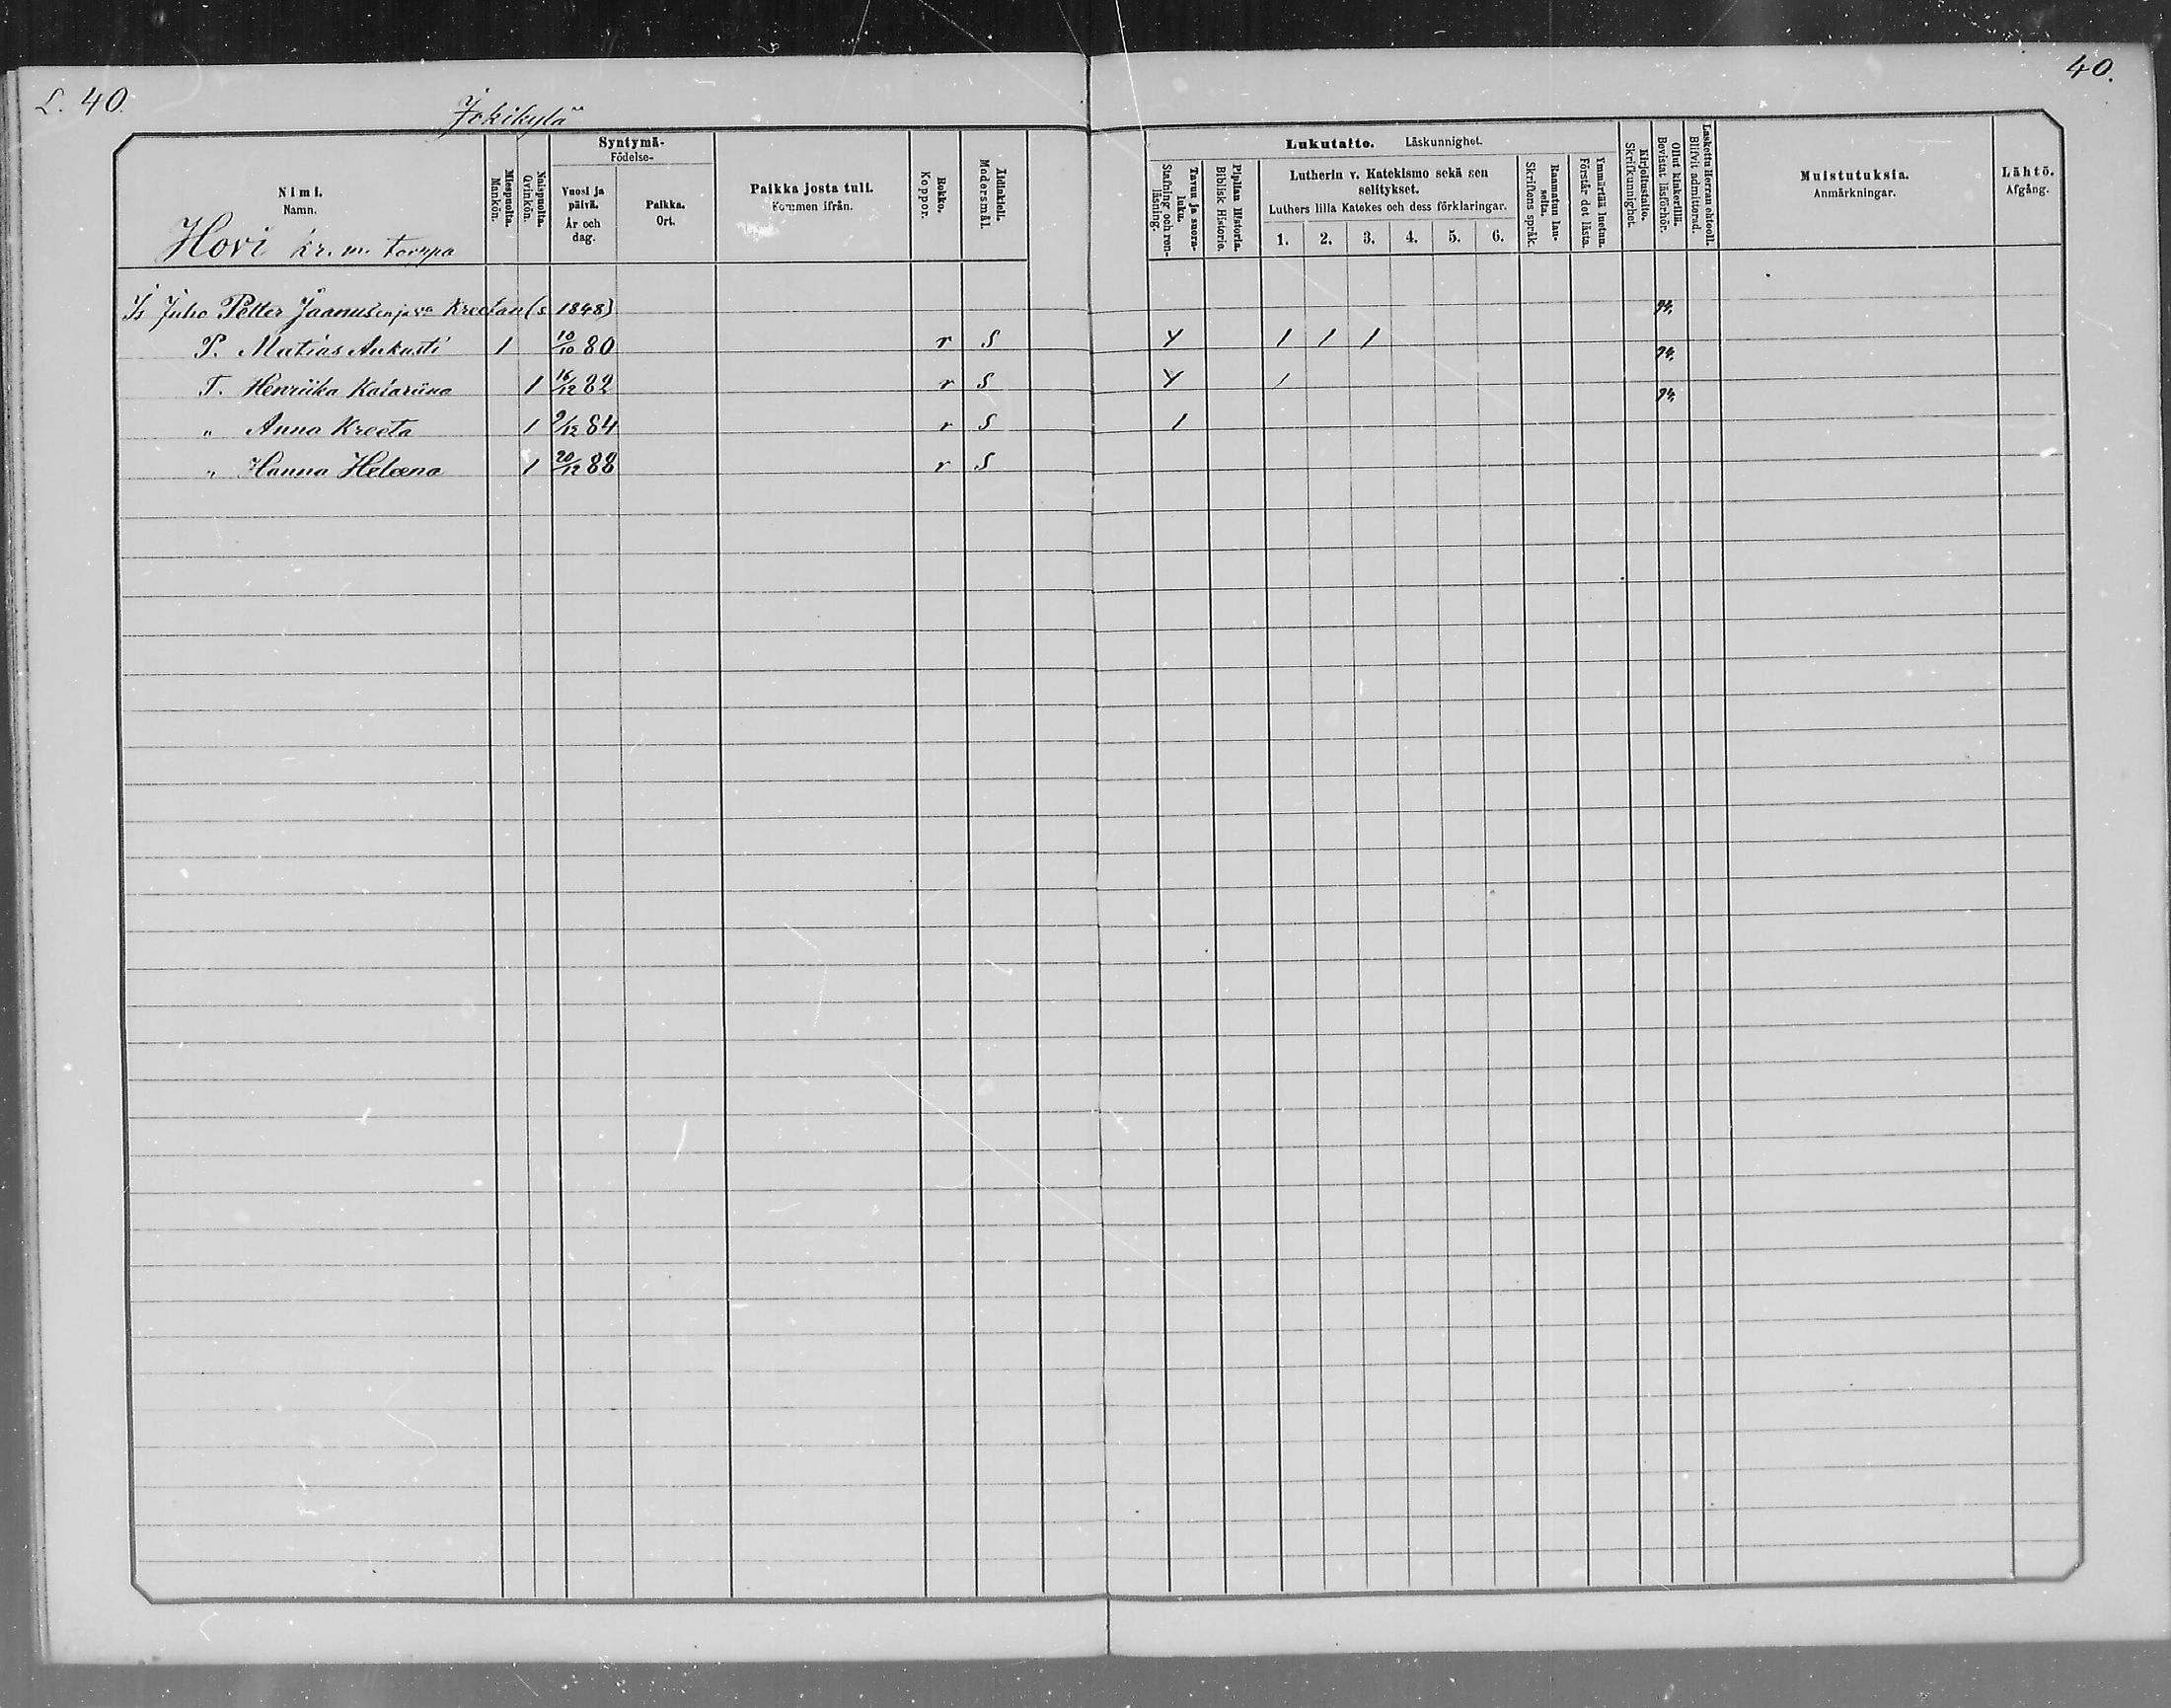 L. 40.
40.
Jokikylä
Nimi.
Namn.
Hovi kr. m. torppa
Miespuolta.
Mankön.
Naispuolta.
Qvinkön.
Syntymä-
Födelse-
Vuosi ja
päivä.
År och
dag.
Paikka.
Ort.
Paikka josta tuli.
Kommen ifrån.
Rokko.
Koppor.
Äidinkieli.
Modersmål.
Lukutaito. Läskunnighet.
Tavuu ja suora-
luku.
Stafning och ren-
läsning.
Piplian Historia.
Biblisk Historie.
Lutherin v. Katekismo sekä sen
selitykset.
Luthers lilla Katekes och dess förklaringar.
1. 2. 3. 4. 5. 6.
Raamatun lau-
seita.
Skriftens språk.
Ymmärtää luetun.
Förstår det lästa.
Kirjoitustaito.
Skrifkunnighet.
Ollut kinkerillä.
Bevistat läsförhör.
Laskettu Herran ehtooll.
Blifvit admitterad.
Muistutuksia.
Anmärkningar.
Lähtö.
Afgång.
Is Juho Petter Jaanuksen ja va Kreetan (s. 1848)
P. Matias Aukusti 1 10/10 80 r S Y 1 1 1 94.
T. Henriika Katariina 1 16/12 82 r S Y 1 94.
" Anna Kreeta 1 9/12 84 r S 1 94.
" Hanna Heleena 1 20/12 88 r S